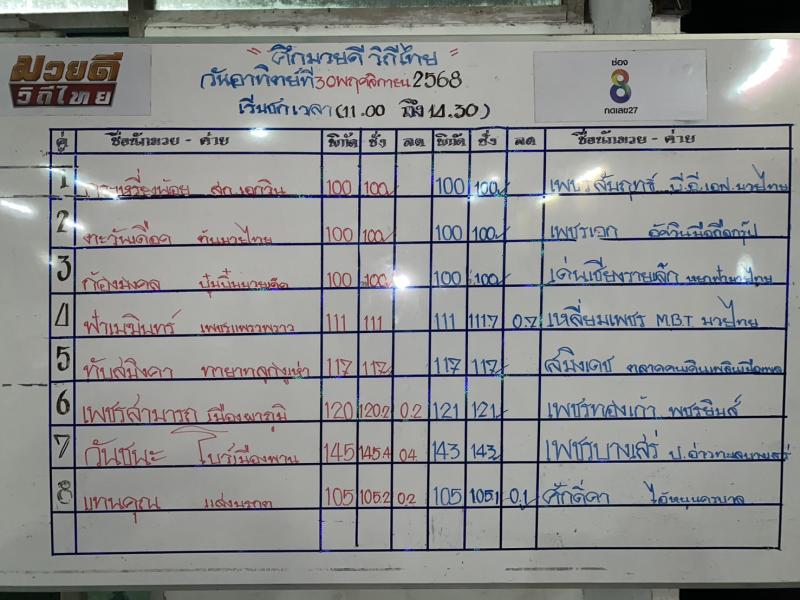 มวยดี
วิถีไทย
" ศึกมวยดี วิถีไทย "
วันอาทิตย์ที่ 30 พฤศจิกายน 2568
เริ่มชกเวลา (11.00 ถึง 14.30)
ช่อง
8
กดเลข27
คู่ ชื่อนักมวย - ค่าย พิกัด ชั่ง ลด พิกัด ชั่ง ลด ชื่อนักมวย - ค่าย
1 กระเหรี่ยงน้อย 100 100 100 100 เพชรสัมฤทธิ์ พี.อี.เอฟ.มวยไทย
2 ตะวันเดือด ทันมวยไทย 100 100 100 100 เพชรเอก
3 ก้องมงคล 100 100 100 100 เด่นเชียงรายเล็ก หยกฟ้ามวยไทย
4 ฟ้าเมฆินทร์ เพชรแพรวพราว 111 111 111 111.7 0.7 เหลี่ยมเพชร M.B.T. มวยไทย
5 ทับสมิงคา ทายาทลูกงูเห่า 117 117 117 117 สมิงเดช ตลาดคนเดินเพลินเมืองพล
6 เพชรสามารถ เมืองผาภูมิ 120 120.2 0.2 121 121 เพชรทองเก้า พชรยิมส์
7 วันชนะ โบร์เมืองพาน 145 145.4 0.4 143 143 เพชรบางเสร่ ป.อ่าวทะเลบางเสร่
8 แทนคุณ แสงมรกต 105 105.2 0.2 105 105.1 0.1 ศักดิ์ดา ไอ้หนุ่มดราม่า